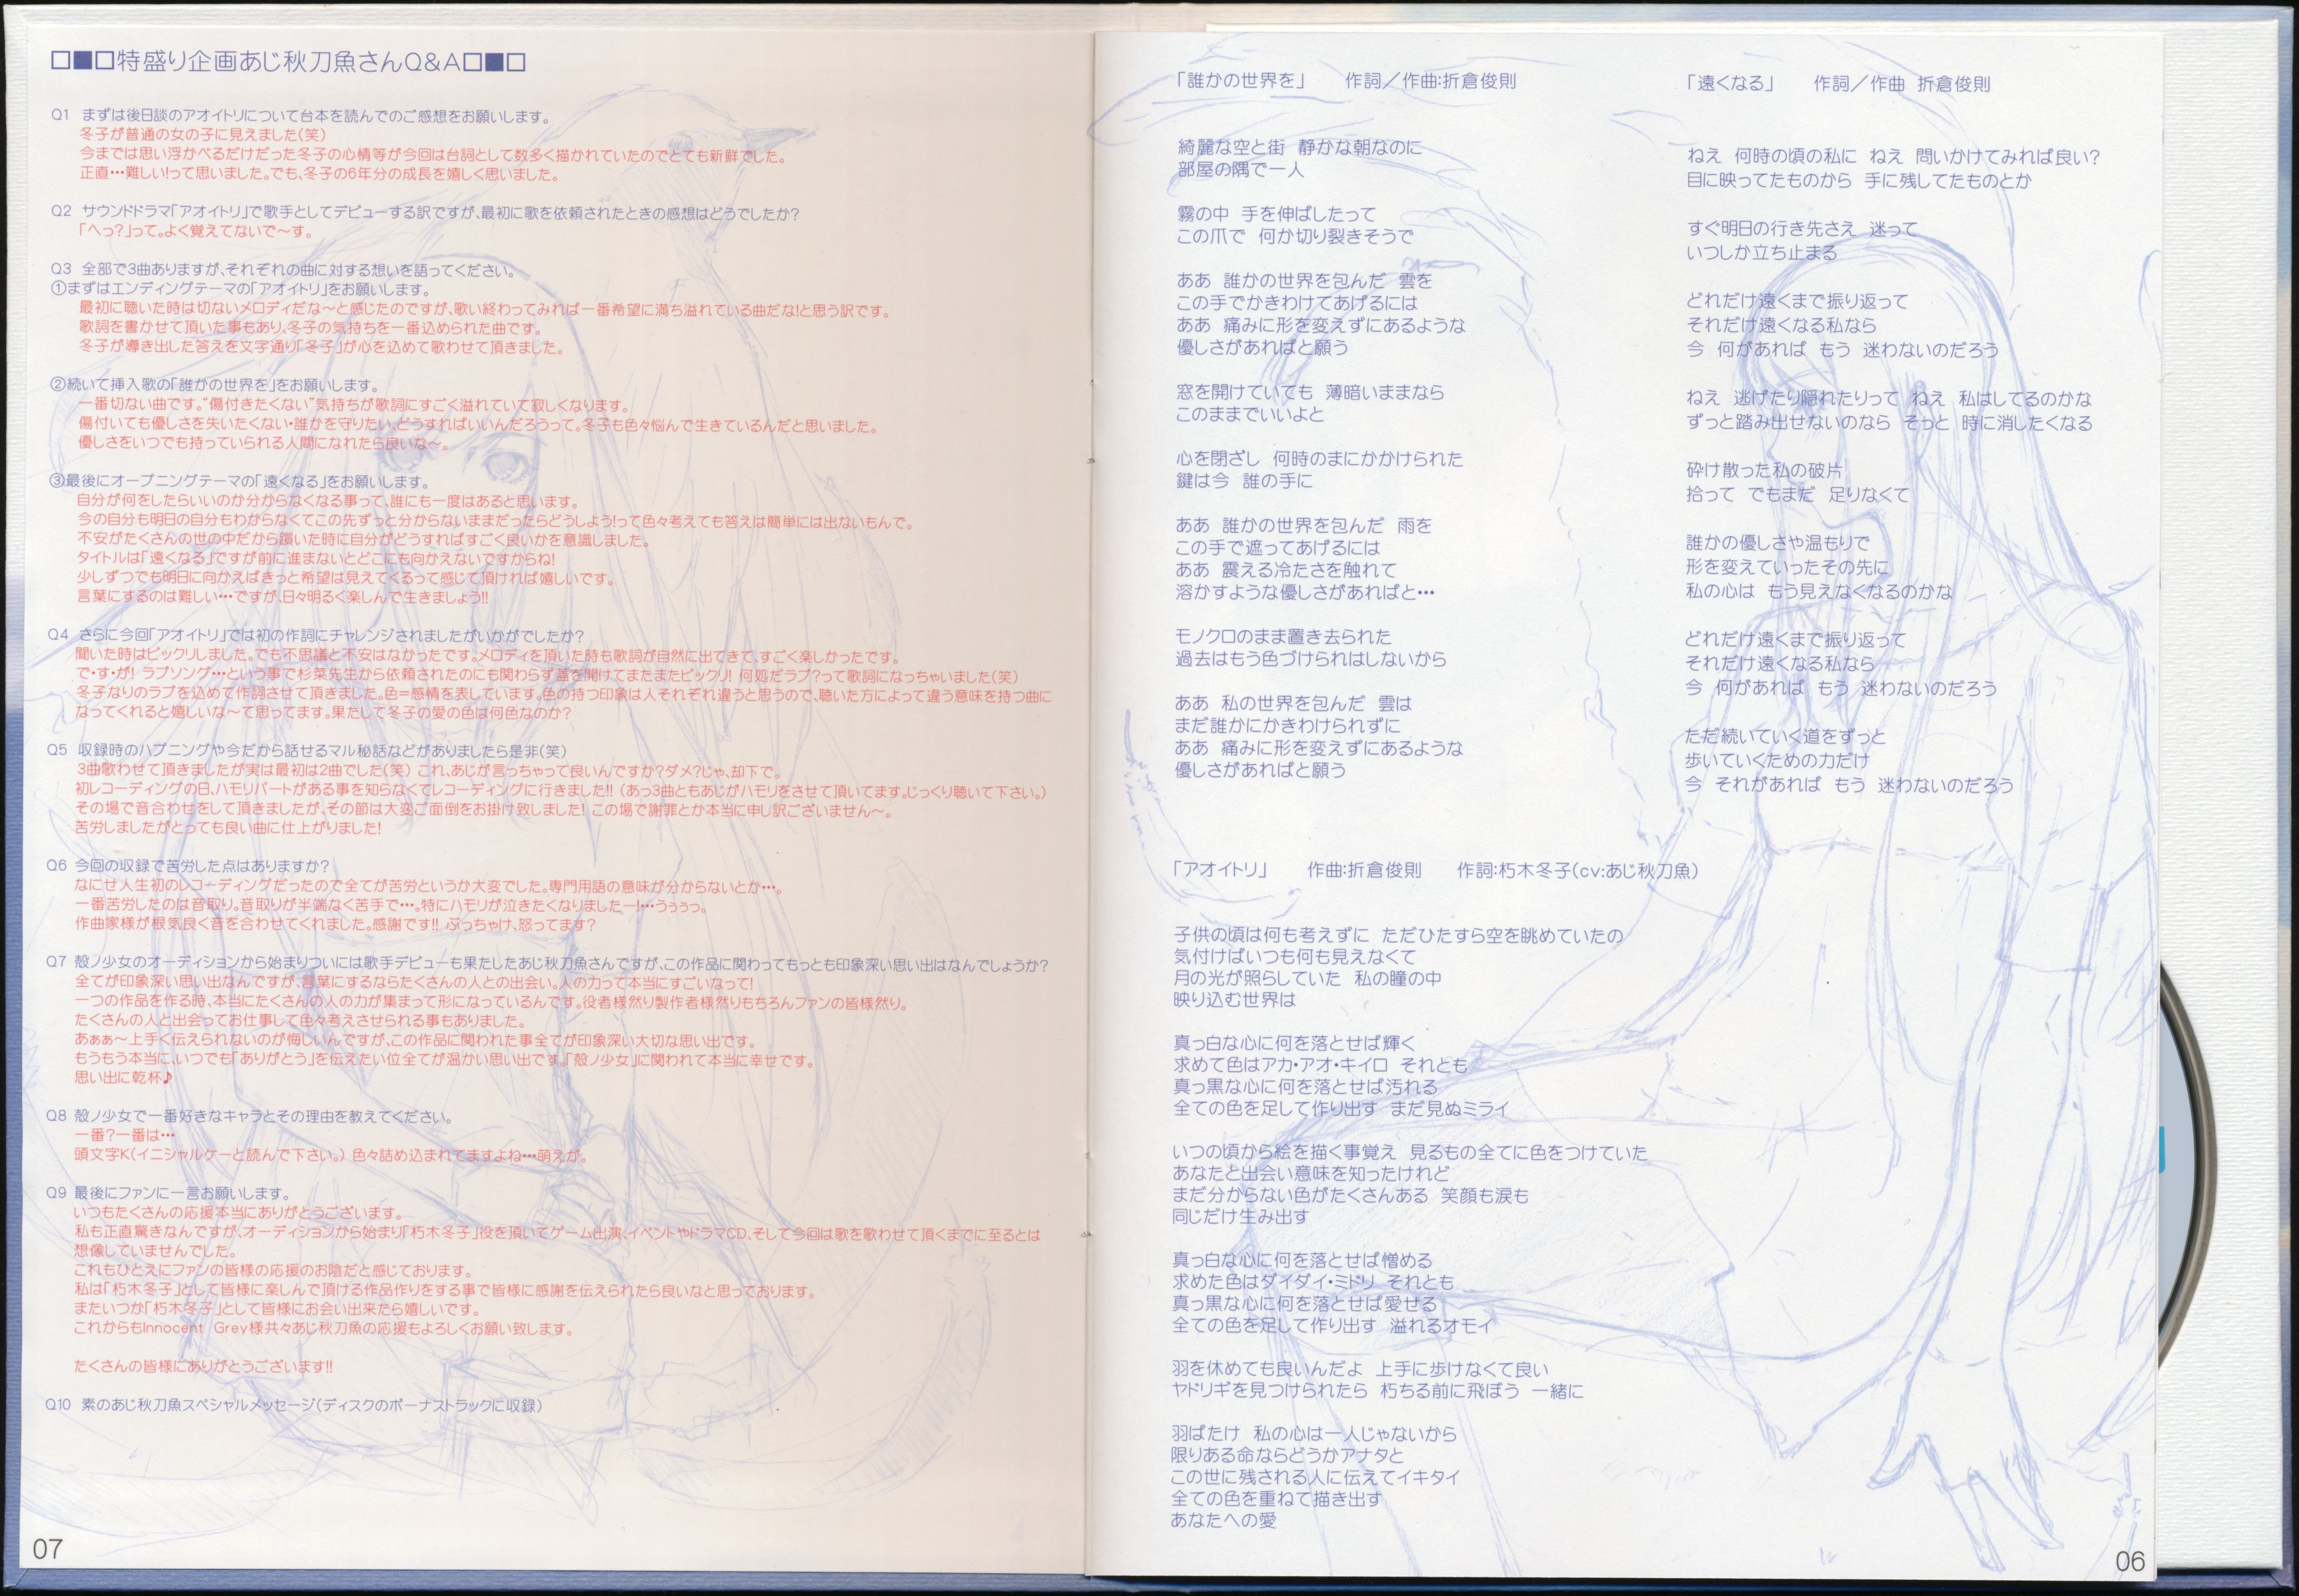 □■□特盛り企画あじ秋刀魚さんQ&A□■□
Q1 まずは後日談のアオイトリについて台本を読んでのご感想をお願いします。
冬子が普通の女の子に見えました(笑)
今までは思い浮かべるだけだった冬子の心情等が今回は台詞として数多く描かれていたのでとても新鮮でした。
正直・・・難しい!って思いました。でも、冬子の6年分の成長を嬉しく思いました。
Q2 サウンドドラマ「アオイトリ」で歌手としてデビューする訳ですが、最初に歌を依頼されたときの感想はどうでしたか?
「へっ?」って。よく覚えてないで〜す。
Q3 全部で3曲ありますが、それぞれの曲に対する想いを語ってください。
①まずはエンディングテーマの「アオイトリ」をお願いします。
最初に聴いた時は切ないメロディだな〜と感じたのですが、歌い終わってみれば一番希望に満ち溢れている曲だな!と思う訳です。
歌詞を書かせて頂いた事もあり、冬子の気持ちを一番込められた曲です。
冬子が導き出した答えを文字通り「冬子」が心を込めて歌わせて頂きました。
②続いて挿入歌の「誰かの世界を」をお願いします。
一番切ない曲です。“傷付きたくない”気持ちが歌詞にすごく溢れていて寂しくなります。
傷付いても優しさを失いたくない・誰かを守りたい、どうすればいいんだろうって。冬子も色々悩んで生きているんだと思いました。
優しさをいつでも持っていられる人間になれたら良いな〜。
③最後にオープニングテーマの「遠くなる」をお願いします。
自分が何をしたらいいのか分からなくなる事って、誰にも一度はあると思います。
今の自分も明日の自分もわからなくてこの先ずっと分からないままだったらどうしよう!って色々考えても答えは簡単には出ないもんで。
不安がたくさんの世の中だから躓いた時に自分がどうすればすごく良いかを意識しました。
タイトルは「遠くなる」ですが前に進まないとどこにも向かえないですからね!
少しずつでも明日に向かえばきっと希望は見えてくるって感じて頂ければ嬉しいです。
言葉にするのは難しい・・・ですが、日々明るく楽しんで生きましょう!!
Q4 さらに今回「アオイトリ」では初の作詞にチャレンジされましたがいかがでしたか?
聞いた時はビックリしました。でも不思議と不安はなかったです。メロディを頂いた時も歌詞が自然に出てきて、すごく楽しかったです。
で・す・が! ラブソング・・・という事で杉菜先生から依頼されたのにも関わらず蓋を開けてまたまたビックリ! 何処だラブ?って歌詞になっちゃいました(笑)
冬子なりのラブを込めて作詞させて頂きました。色=感情を表しています。色の持つ印象は人それぞれ違うと思うので、聴いた方によって違う意味を持つ曲に
なってくれると嬉しいな〜て思ってます。果たして冬子の愛の色は何色なのか?
Q5 収録時のハプニングや今だから話せるマル秘話などがありましたら是非(笑)
3曲歌わせて頂きましたが実は最初は2曲でした(笑) これ、あじが言っちゃって良いんですか?ダメ?じゃ、却下で。
初レコーディングの日、ハモリパートがある事を知らなくてレコーディングに行きました!! (あっ3曲ともあじがハモリをさせて頂いてます。じっくり聴いて下さい。)
その場で音合わせをして頂きましたが、その節は大変ご面倒をお掛け致しました! この場で謝罪とか本当に申し訳ございません〜。
苦労しましたがとっても良い曲に仕上がりました!
Q6 今回の収録で苦労した点はありますか?
なにせ人生初のレコーディングだったので全てが苦労というか大変でした。専門用語の意味が分からないとか・・・。
一番苦労したのは音取り。音取りが半端なく苦手で・・・。特にハモリが泣きたくなりましたー!・・・うぅぅっ。
作曲家様が根気良く音を合わせてくれました。感謝です!! ぶっちゃけ、怒ってます?
Q7 殻ノ少女のオーディションから始まりついには歌手デビューも果たしたあじ秋刀魚さんですが、この作品に関わってもっとも印象深い思い出はなんでしょうか?
全てが印象深い思い出なんですが、言葉にするならたくさんの人との出会い。人の力って本当にすごいなって!
一つの作品を作る時、本当にたくさんの人の力が集まって形になっているんです。役者様然り製作者様然りもちろんファンの皆様然り。
たくさんの人と出会ってお仕事して色々考えさせられる事もありました。
あぁぁ〜上手く伝えられないのが悔しいんですが、この作品に関われた事全てが印象深い大切な思い出です。
もうもう本当に、いつでも「ありがとう」を伝えたい位全てが温かい思い出です。「殻ノ少女」に関われて本当に幸せです。
思い出に乾杯♪
Q8 殻ノ少女で一番好きなキャラとその理由を教えてください。
一番?一番は・・・
頭文字K(イニシャルケーと読んで下さい。) 色々詰め込まれてますよね・・・萌えが。
Q9 最後にファンに一言お願いします。
いつもたくさんの応援本当にありがとうございます。
私も正直驚きなんですが、オーディションから始まり「朽木冬子」役を頂いてゲーム出演、イベントやドラマCD、そして今回は歌を歌わせて頂くまでに至るとは
想像していませんでした。
これもひとえにファンの皆様の応援のお陰だと感じております。
私は「朽木冬子」として皆様に楽しんで頂ける作品作りをする事で皆様に感謝を伝えられたら良いなと思っております。
またいつか「朽木冬子」として皆様にお会い出来たら嬉しいです。
これからもInnocent Grey様共々あじ秋刀魚の応援もよろしくお願い致します。
たくさんの皆様にありがとうございます!!
Q10 素のあじ秋刀魚スペシャルメッセージ(ディスクのボーナストラックに収録)
07
「誰かの世界を」 作詞/作曲:折倉俊則
綺麗な空と街 静かな朝なのに
部屋の隅で一人
霧の中 手を伸ばしたって
この爪で 何か切り裂きそうで
ああ 誰かの世界を包んだ 雲を
この手でかきわけてあげるには
ああ 痛みに形を変えずにあるような
優しさがあればと願う
窓を開けていても 薄暗いままなら
このままでいいよと
心を閉ざし 何時のまにかかけられた
鍵は今 誰の手に
ああ 誰かの世界を包んだ 雨を
この手で遮ってあげるには
ああ 震える冷たさを触れて
溶かすような優しさがあればと・・・
モノクロのまま置き去られた
過去はもう色づけられはしないから
ああ 私の世界を包んだ 雲は
まだ誰かにかきわけられずに
ああ 痛みに形を変えずにあるような
優しさがあればと願う
「遠くなる」 作詞/作曲 折倉俊則
ねえ 何時の頃の私に ねえ 問いかけてみれば良い?
目に映ってたものから 手に残してたものとか
すぐ明日の行き先さえ 迷って
いつしか立ち止まる
どれだけ遠くまで振り返って
それだけ遠くなる私なら
今 何があれば もう 迷わないのだろう
ねえ 逃げたり隠れたりって ねえ 私はしてるのかな
ずっと踏み出せないのなら そっと 時に消したくなる
砕け散った私の破片
拾って でもまだ 足りなくて
誰かの優しさや温もりで
形を変えていったその先に
私の心は もう見えなくなるのかな
どれだけ遠くまで振り返って
それだけ遠くなる私なら
今 何があれば もう 迷わないのだろう
ただ続いていく道をずっと
歩いていくための力だけ
今 それがあれば もう 迷わないのだろう
「アオイトリ」 作曲:折倉俊則 作詞:朽木冬子(cv:あじ秋刀魚)
子供の頃は何も考えずに ただひたすら空を眺めていたの
気付けばいつも何も見えなくて
月の光が照らしていた 私の瞳の中
映り込む世界は
真っ白な心に何を落とせば輝く
求めて色はアカ・アオ・キイロ それとも
真っ黒な心に何を落とせば汚れる
全ての色を足して作り出す まだ見ぬミライ
いつの頃から絵を描く事覚え 見るもの全てに色をつけていた
あなたと出会い意味を知ったけれど
まだ分からない色がたくさんある 笑顔も涙も
同じだけ生み出す
真っ白な心に何を落とせば憎める
求めた色はダイダイ・ミドリ それとも
真っ黒な心に何を落とせば愛せる
全ての色を足して作り出す 溢れるオモイ
羽を休めても良いんだよ 上手に歩けなくて良い
ヤドリギを見つけられたら 朽ちる前に飛ぼう 一緒に
羽ばたけ 私の心は一人じゃないから
限りある命ならどうかアナタと
この世に残される人に伝えてイキタイ
全ての色を重ねて描き出す
あなたへの愛
06